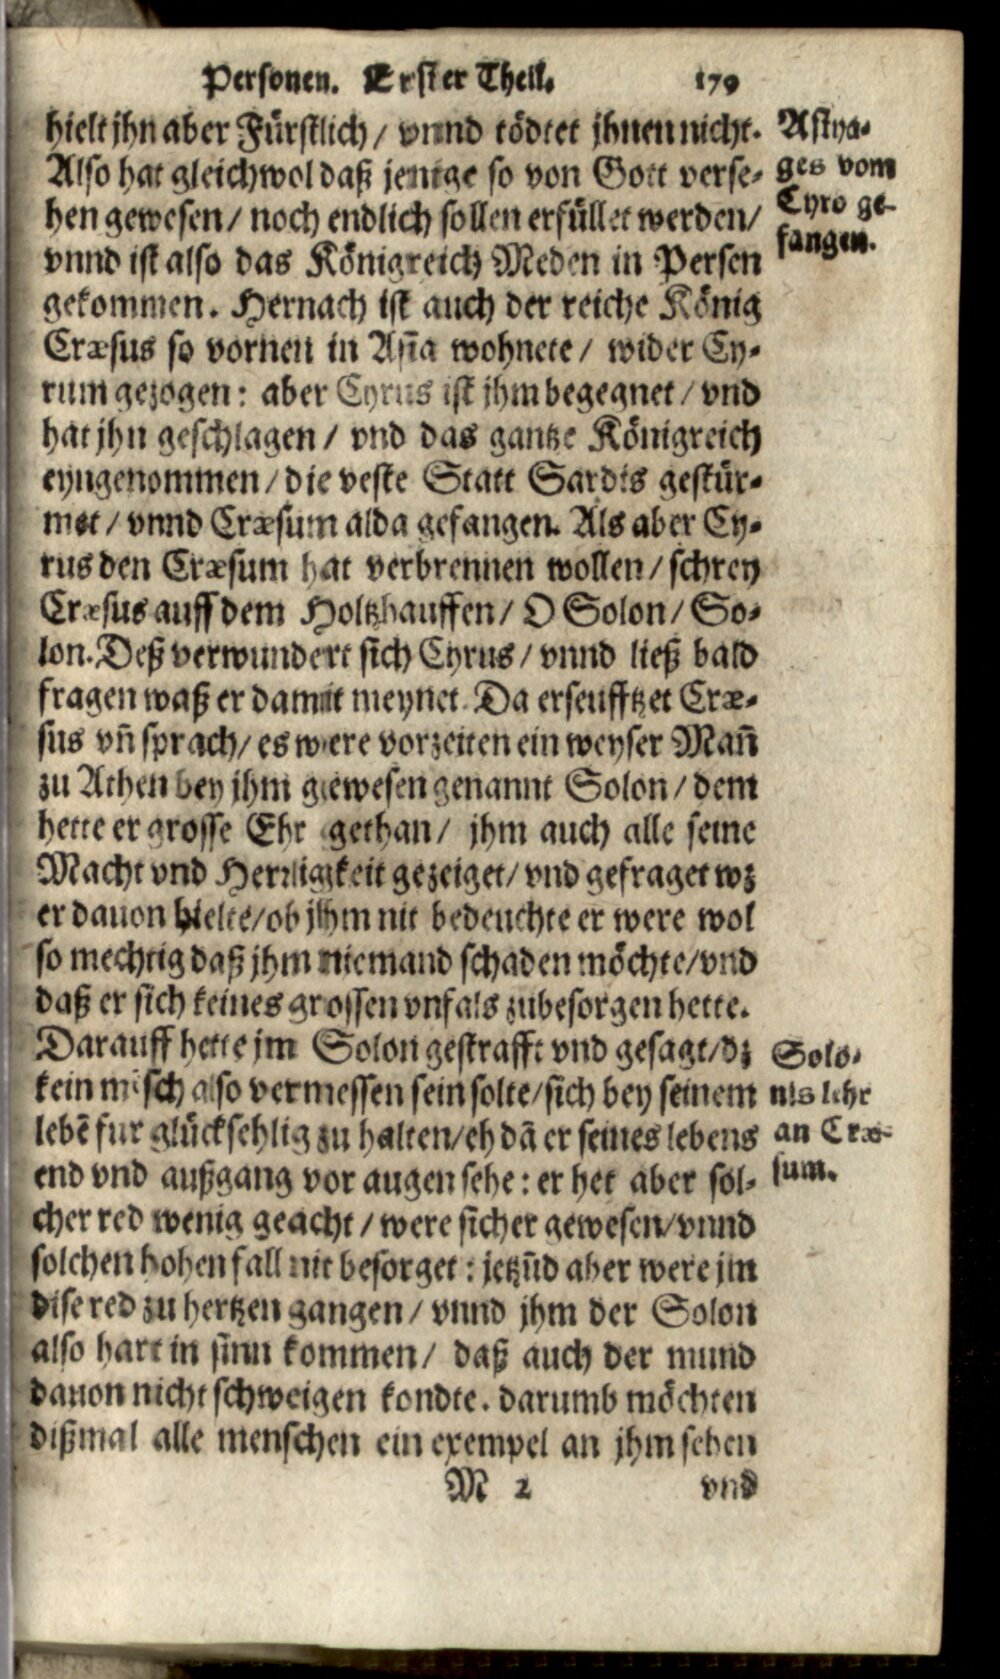 Personen. Erster Theil. 179
hielt jhn aber Fürstlich / vnnd tödtet jhnen nicht.
Also hat gleichwol daß jenige so von Gott verse-
hen gewesen / noch endlich sollen erfüllet werden /
vnnd ist also das Königreich Meden in Persen
gekommen. Hernach ist auch der reiche König
Cræsus so vornen in Asia wohnete / wider Cy-
rum gezogen: aber Cyrus ist jhm begegnet / vnd
hat jhn geschlagen / vnd das gantze Königreich
eyngenommen / die veste Statt Sardis gestür-
met / vnnd Cræsum alda gefangen. Als aber Cy-
rus den Cræsum hat verbrennen wollen / schrey
Cræsus auff dem Holtzhauffen / O Solon / So-
lon. Deß verwundert sich Cyrus / vnnd ließ bald
fragen waß er damit meynet. Da erseufftzet Cræ-
sus vn̄ sprach / es were vorzeiten ein weyser Man̄
zu Athen bey jhm gewesen genannt Solon / dem
hette er grosse Ehr gethan / jhm auch alle seine
Macht vnd Herrligkeit gezeiget / vnd gefraget wz
er dauon hielte / ob jhm nit bedeuchte er were wol
so mechtig daß jhm niemand schaden möchte / vnd
daß er sich keines grossen vnfals zubesorgen hette.
Darauff hette jm Solon gestrafft vnd gesagt / dz
kein mēsch also vermessen sein solte / sich bey seinem
lebē fur glücksehlig zu halten / eh dā er seines lebens
end vnd außgang vor augen sehe: er het aber sol-
cher red wenig geacht / were sicher gewesen / vnnd
solchen hohen fall nit besorget: jetzūd aber were jm
dise red zu hertzen gangen / vnnd jhm der Solon
also hart in sinn kommen / daß auch der mund
dauon nicht schweigen kondte. darumb möchten
dißmal alle menschen ein exempel an jhm sehen
M 2 vnd
Astya-
ges vom
Cyro ge-
fangen.
Solo-
nis lehr
an Cræ-
sum.